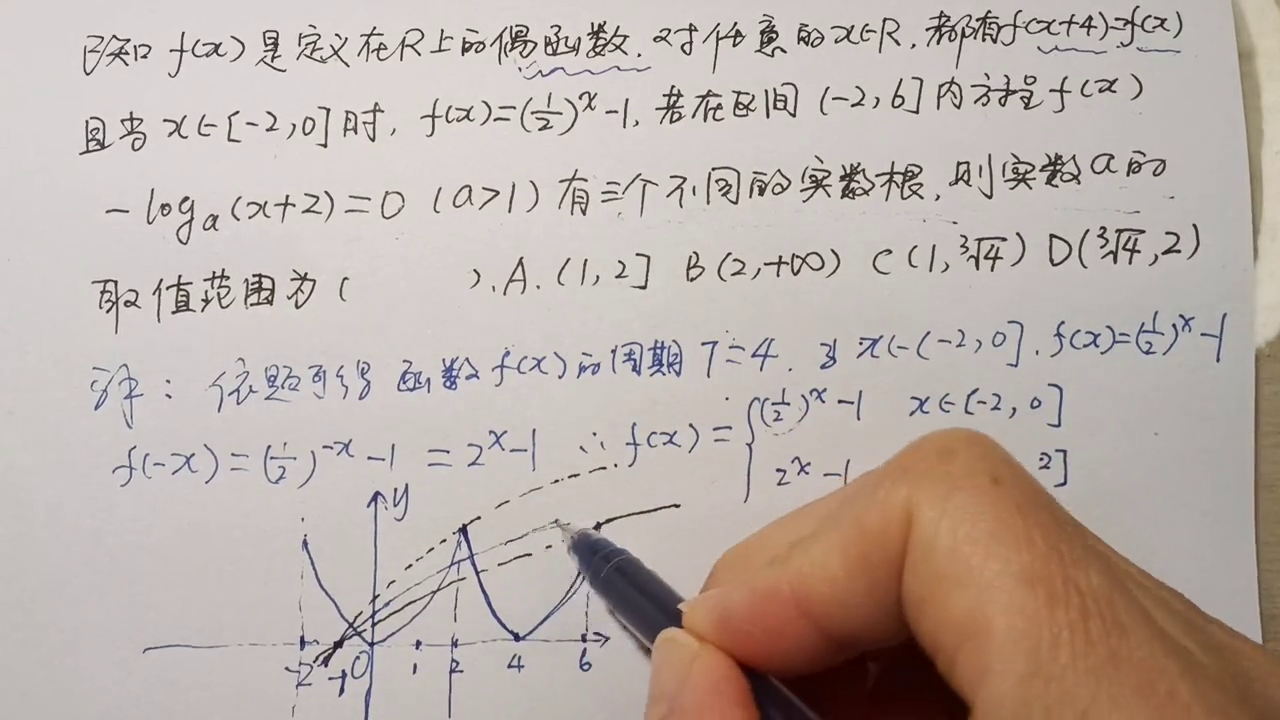 已知 f(x) 是定义在R上的偶函数. 对任意的x∈R, 都有f(x+4)=f(x)
且当 x∈[-2,0] 时, f(x)=(1/2)^x -1, 若在区间 (-2,6] 内方程 f(x)
-log_a(x+2)=0 (a>1) 有三个不同的实数根, 则实数a的
取值范围为 ( ). A. (1,2] B(2,+∞) C(1,³√4) D(³√4,2)
解: 依题可得 函数 f(x) 的周期 T=4. 当 x∈(-2,0]. f(x)=(1/2)^x -1
f(-x)=(1/2)^-x -1 = 2^x-1 ∴ f(x)= { (1/2)^x -1 x∈[-2,0]
2^x -1 2]
y
-2 -1 0 1 2 4 6